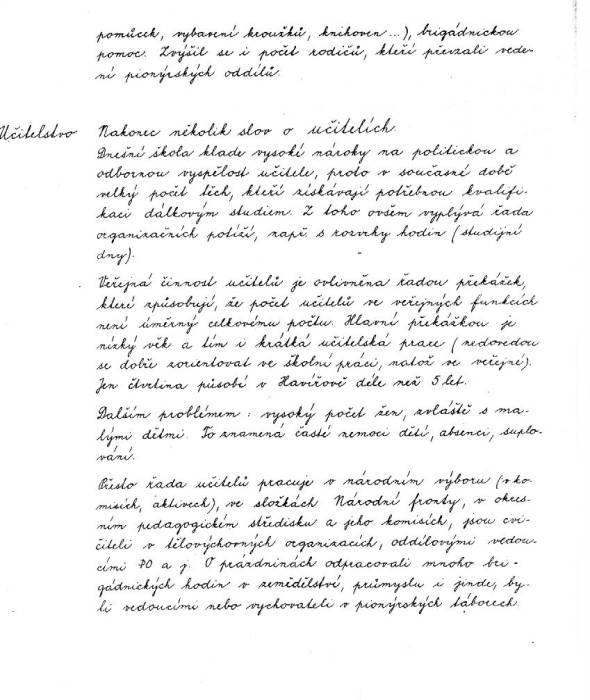 pomůcek, vybavení kroužků, knihoven ...), brigádnickou
pomoc. Zvýšil se i počet rodičů, kteří převzali vede-
ní pionýrských oddílů.
Učitelstvo
Nakonec několik slov o učitelích.
Dnešní škola klade vysoké nároky na politickou a
odbornou vyspělost učitele, proto v současné době
velký počet těch, kteří získávají potřebnou kvalifi-
kaci dálkovým studiem. Z toho ovšem vyplývá řada
organizačních potíží, např. s rozvrhy hodin (studijní
dny).
Veřejná činnost učitelů je ovlivněna řadou překážek,
které způsobují, že počet učitelů ve veřejných funkcích
není úměrný celkovému počtu. Hlavní překážkou je
nízký věk a tím i krátká učitelská praxe (nedovedou
se dobře zorientovat ve školní práci, natož ve veřejné).
Jen čtvrtina působí v Havířově déle než 5 let.
Dalším problémem: vysoký počet žen, zvláště s ma-
lými dětmi. To znamená časté nemoci dětí, absenci, suplo-
vání.
Přesto řada učitelů pracuje v národním výboru (v ko-
misích, aktivech), ve složkách Národní fronty, v okres-
ním pedagogickém středisku a jeho komisích, jsou cvi-
čiteli v tělovýchovných organizacích, oddílovými vedou-
cími PO a j. O prázdninách odpracovali mnoho bri-
gádnických hodin v zemědělství, průmyslu i jinde, by-
li vedoucími nebo vychovateli v pionýrských táborech.